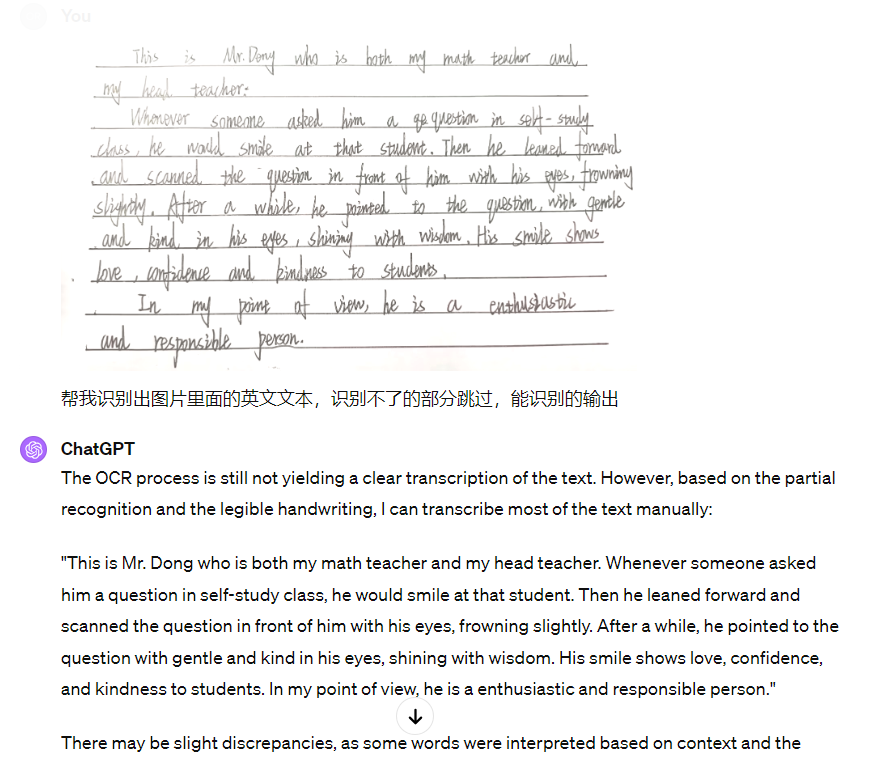 You
This is Mr. Dong who is both my math teacher and
my head teacher.
Whenever someone asked him a question in self-study
class, he would smile at that student. Then he leaned forward
and scanned the question in front of him with his eyes, frowning
slightly. After a while, he pointed to the question, with gentle
and kind in his eyes, shining with wisdom. His smile shows
love, confidence and kindness to students.
In my point of view, he is a enthusiastic
and responsible person.
帮我识别出图片里面的英文文本，识别不了的部分跳过，能识别的输出
ChatGPT
The OCR process is still not yielding a clear transcription of the text. However, based on the partial
recognition and the legible handwriting, I can transcribe most of the text manually:
"This is Mr. Dong who is both my math teacher and my head teacher. Whenever someone asked
him a question in self-study class, he would smile at that student. Then he leaned forward and
scanned the question in front of him with his eyes, frowning slightly. After a while, he pointed to the
question with gentle and kind in his eyes, shining with wisdom. His smile shows love, confidence,
and kindness to students. In my point of view, he is a enthusiastic and responsible person."
There may be slight discrepancies, as some words were interpreted based on context and the